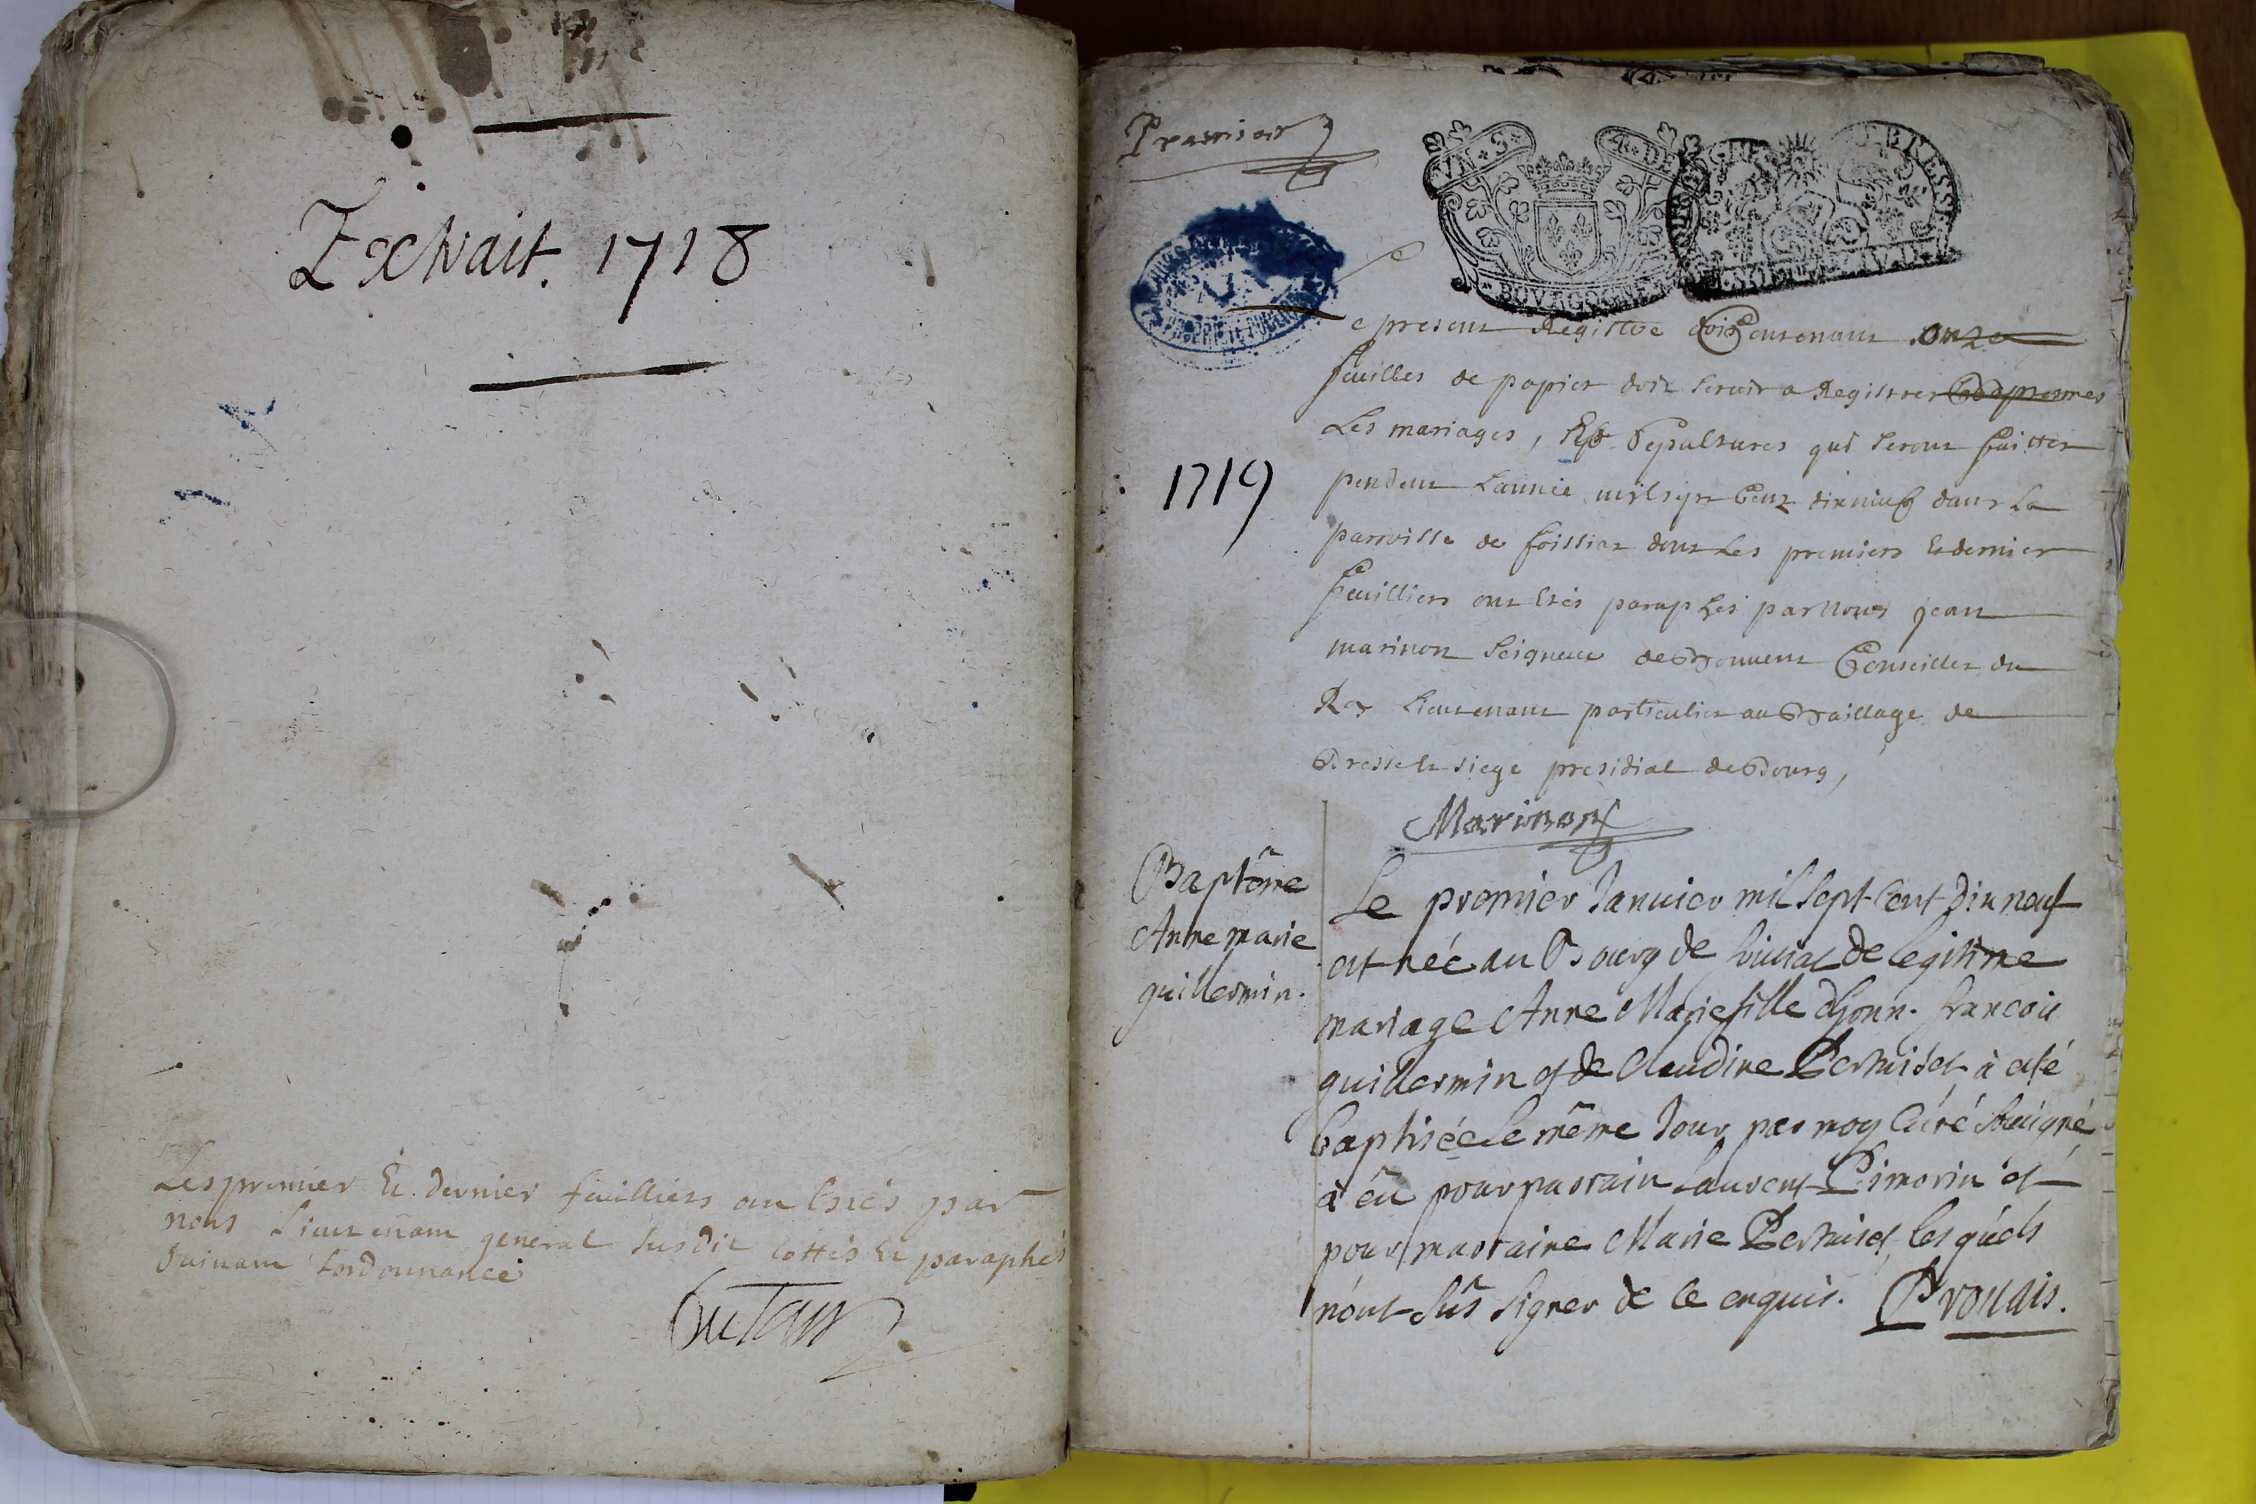 Extrait. 1718
Les premier Et dernier feuilliers ont Estés par
nous Lieutenant general susdit cottés Et paraphés
suivant Lordonnance
Premier
VN S 4 DE
BRESSE
BOVRGOGNE
Le present Registre contenant onze
feuilles de papier doit servir a Registrer
Les mariages, Sepultures qui seront faittes
1719
pendant Lannée mil sept Cent dix neuf dans La
parroisse de foissiat dont Les premiers Et dernier
feuilliers ont Estés paraphés par Nous jean
marinon Seigneur de Conseiller du
Roy Lieutenant particulier au Baillage de
Bresse Et siege presidial de Bourg,
Marinon
Baptême
Anne marie
guillermin.
Le premier Janvier mil sept Cent dix neuf
est néé au Bourg de foissiat de legitime
mariage Anne Marie fille d'honn. francois
guillermin et de Claudine à esté
baptiséé le même Jour par moy Curé soûsigné
à êu pour parrain Laurent et
pour marraine Marie lesquels
n'ont sûs signer de ce enquis.